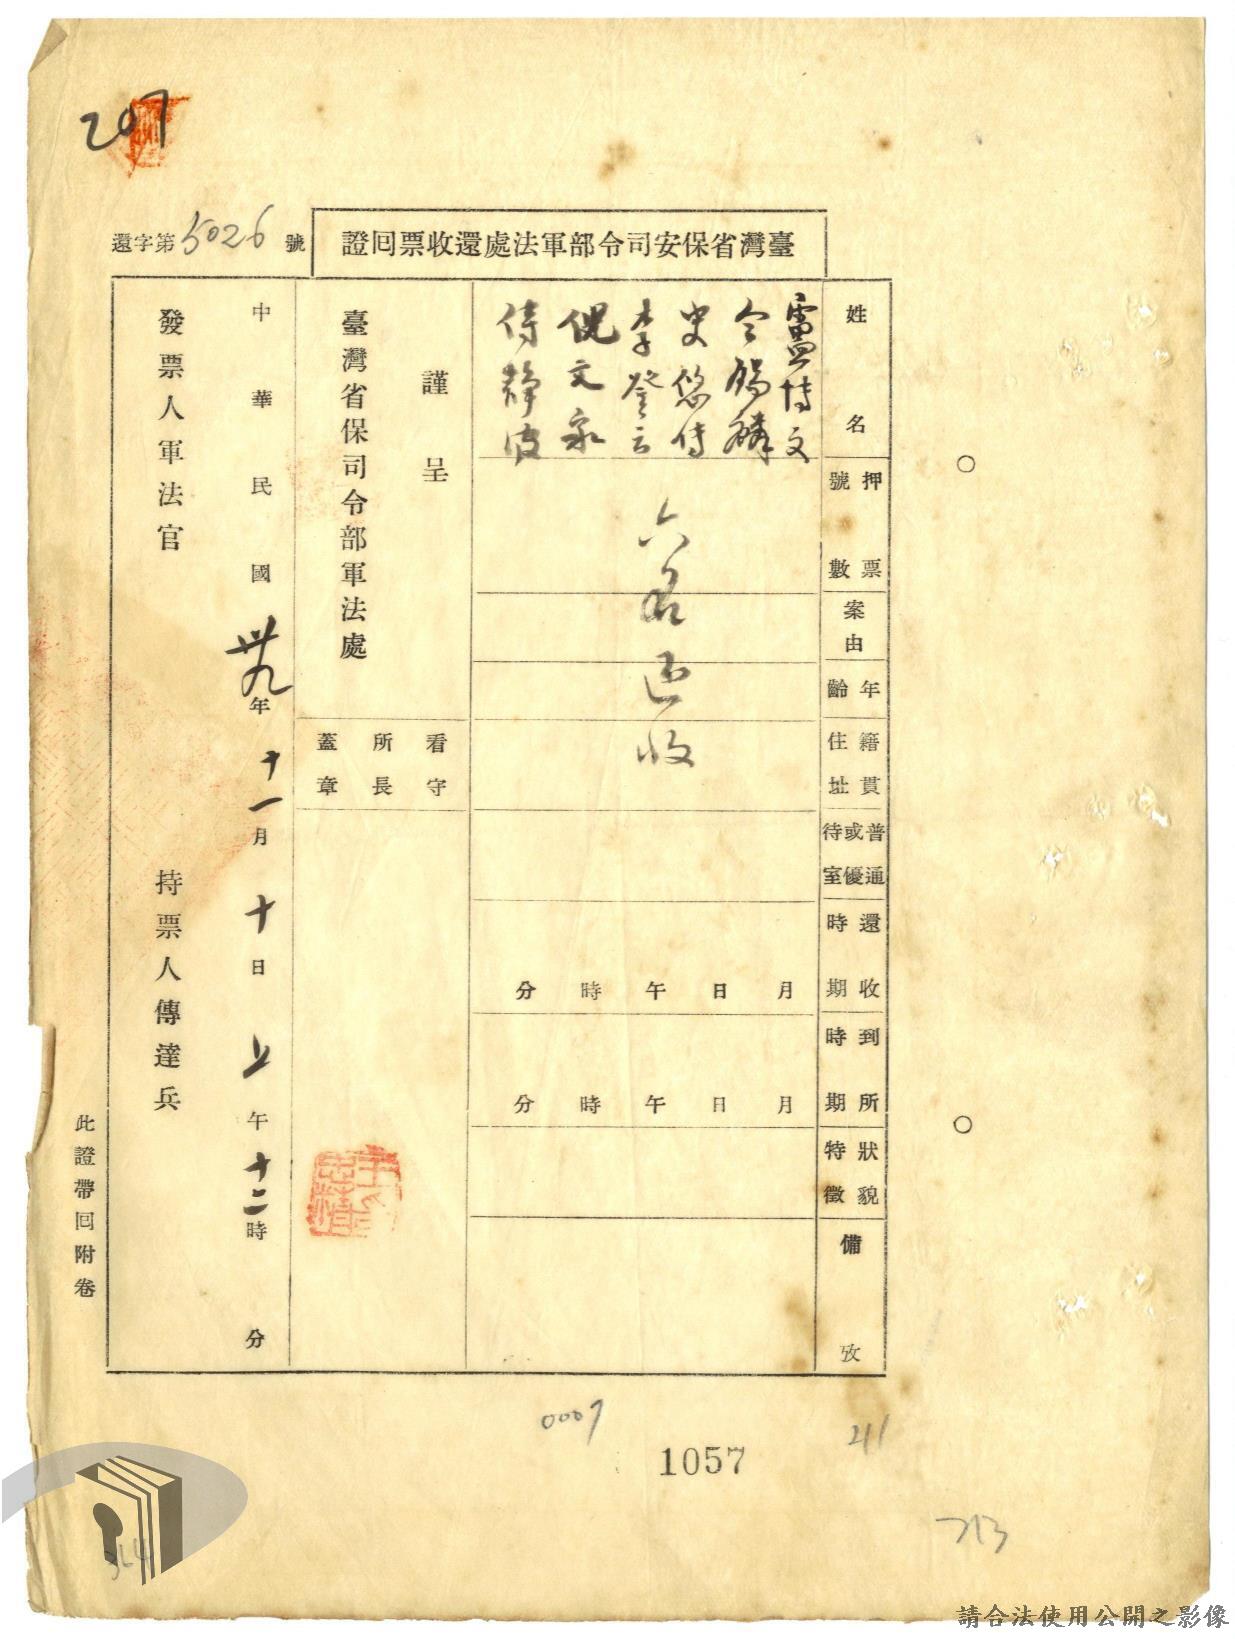 207
臺灣省保安司令部軍法處還收票回證
還字第5026號
姓名
盧博文
仝錫麟
史悠傳
李登云
倪文泉
傅靜波
押票號數
案由
年齡
籍貫住址
普通或優待室
還收時期
月 日 午 時 分
到所時期
月 日 午 時 分
狀貌特徵
備攷
六名还收
謹呈
臺灣省保司令部軍法處
看守所長蓋章
中華民國卅九年十一月十日上午十二時 分
發票人軍法官
持票人傳達兵
此證帶回附卷
0007
1057
211
713
請合法使用公開之影像